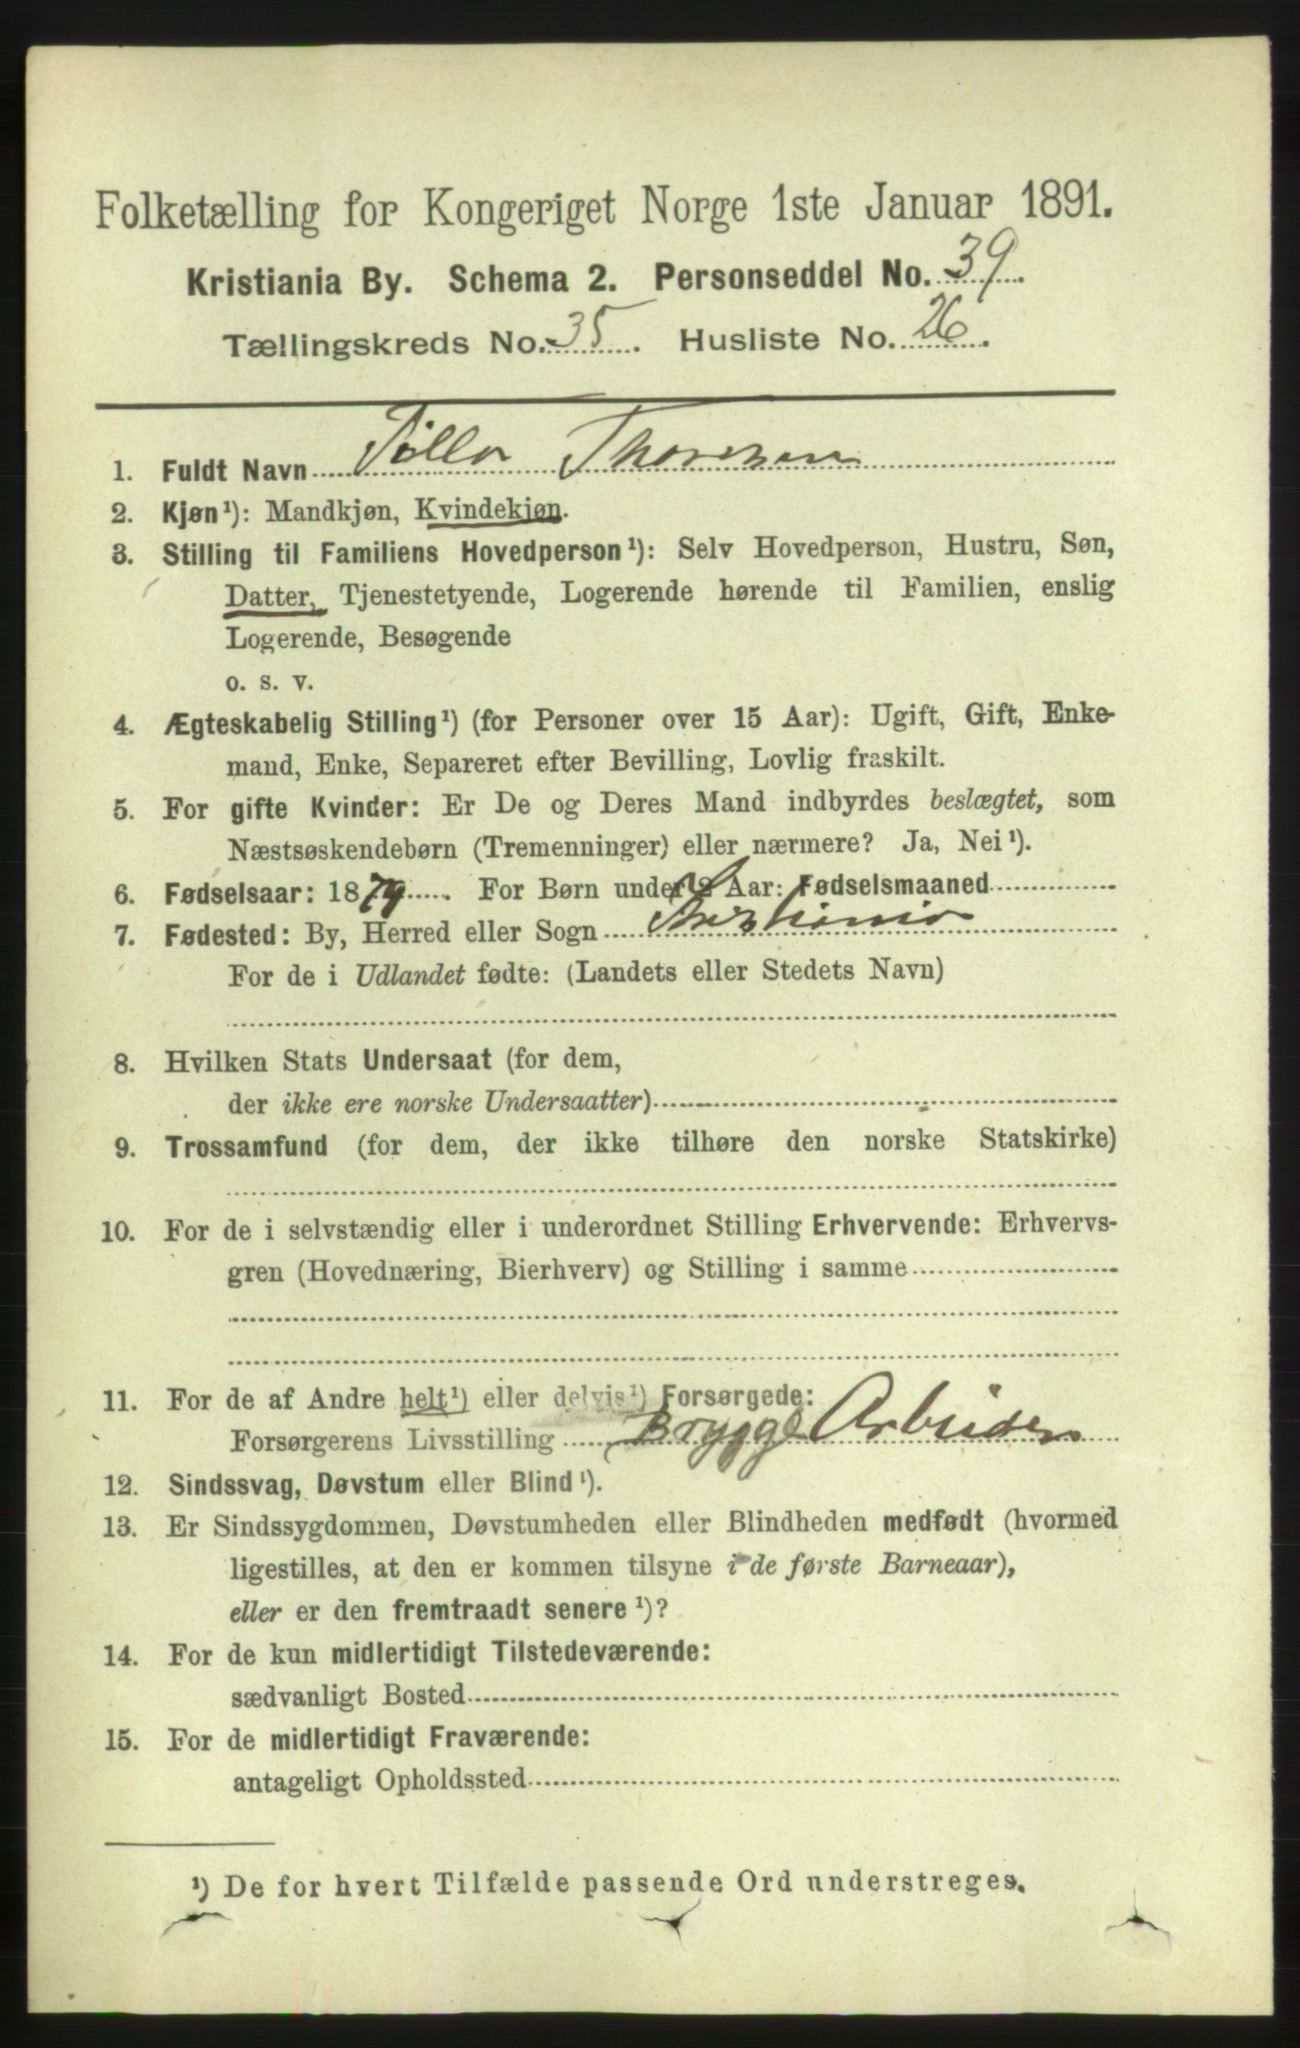 Folketælling for Kongeriget Norge 1ste Januar 1891.
Kristiania By. Schema 2. Personseddel No. 39.
Tællingskreds No. 35. Husliste No. 26.
1. Fuldt Navn Thoresen
2. Kjøn¹): Mandkjøn, Kvindekjøn.
3. Stilling til Familiens Hovedperson¹): Selv Hovedperson, Hustru, Søn,
Datter, Tjenestetyende, Logerende hørende til Familien, enslig
Logerende, Besøgende
o. s. v.
4. Ægteskabelig Stilling¹) (for Personer over 15 Aar): Ugift, Gift, Enke-
mand, Enke, Separeret efter Bevilling, Lovlig fraskilt.
5. For gifte Kvinder: Er De og Deres Mand indbyrdes beslægtet, som
Næstsøskendebørn (Tremenninger) eller nærmere? Ja, Nei¹).
6. Fødselsaar: 1879. For Børn under 2 Aar: Fødselsmaaned
7. Fødested: By, Herred eller Sogn Kristiania
For de i Udlandet fødte: (Landets eller Stedets Navn)
8. Hvilken Stats Undersaat (for dem,
der ikke ere norske Undersaatter)
9. Trossamfund (for dem, der ikke tilhøre den norske Statskirke)
10. For de i selvstændig eller i underordnet Stilling Erhvervende: Erhvervs-
gren (Hovednæring, Bierhverv) og Stilling i samme
11. For de af Andre helt¹) eller delvis¹) Forsørgede:
Forsørgerens Livsstilling Brygge Arbeider
12. Sindssvag, Døvstum eller Blind¹).
13. Er Sindssygdommen, Døvstumheden eller Blindheden medfødt (hvormed
ligestilles, at den er kommen tilsyne i de første Barneaar),
eller er den fremtraadt senere¹)?
14. For de kun midlertidigt Tilstedeværende:
sædvanligt Bosted
15. For de midlertidigt Fraværende:
antageligt Opholdssted
¹) De for hvert Tilfælde passende Ord understreges.